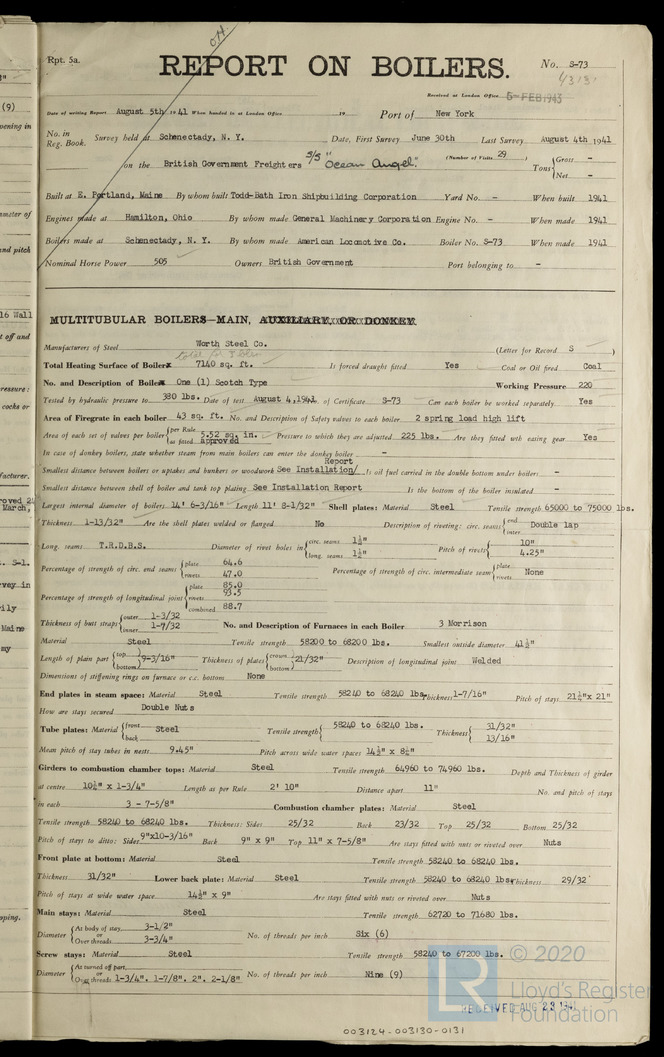 OH.
Rpt. 5a.
REPORT ON BOILERS.
No. S-73
43131
Received at London Office 5-FEB 1943
Date of writing Report August 5th 1941 When handed in at London Office 19 Port of New York
No. in Reg. Book. Survey held at Schenectady, N. Y. Date, First Survey June 30th Last Survey August 4th 1941
on the British Government Freighters S/S "Ocean Angel." (Number of Visits 29) Tons {Gross - Net -
Built at E. Portland, Maine By whom built Todd-Bath Iron Shipbuilding Corporation Yard No. - When built 1941
Engines made at Hamilton, Ohio By whom made General Machinery Corporation Engine No. - When made 1941
Boilers made at Schenectady, N. Y. By whom made American Locomotive Co. Boiler No. S-73 When made 1941
Nominal Horse Power 505 Owners British Government Port belonging to -
MULTITUBULAR BOILERS—MAIN, AUXILIARY, OR DONKEY
Manufacturers of Steel Worth Steel Co. (Letter for Record S )
total for 3 boilers
Total Heating Surface of Boilers 7140 sq. ft. Is forced draught fitted Yes Coal or Oil fired Coal
No. and Description of Boilers One (1) Scotch Type Working Pressure 220
Tested by hydraulic pressure to 380 lbs. Date of test August 4, 1941 No. of Certificate S-73 Can each boiler be worked separately Yes
Area of Firegrate in each boiler 43 sq. ft. No. and Description of Safety valves to each boiler 2 spring load high lift
Area of each set of valves per boiler {per Rule 5.52 sq. in. as fitted approved Pressure to which they are adjusted 225 lbs. Are they fitted with easing gear Yes
In case of donkey boilers, state whether steam from main boilers can enter the donkey boiler -
Smallest distance between boilers or uptakes and bunkers or woodwork See Installation/Report Is oil fuel carried in the double bottom under boilers -
Smallest distance between shell of boiler and tank top plating See Installation Report Is the bottom of the boiler insulated -
Largest internal diameter of boilers 14' 6-3/16" Length 11' 8-1/32" Shell plates: Material Steel Tensile strength 65000 to 75000 lbs.
Thickness 1-13/32" Are the shell plates welded or flanged No Description of riveting: circ. seams {end Double lap inter
Long. seams T.R.D.B.S. Diameter of rivet holes in {circ. seams 1½" long. seams 1½" Pitch of rivets {10" 4.25"
Percentage of strength of circ. end seams {plate 64.6 rivets 47.0 Percentage of strength of circ. intermediate seam {plate rivets None
Percentage of strength of longitudinal joint {plate 85.0 rivets 93.5 combined 88.7
Thickness of butt straps {outer 1-3/32 inner 1-7/32 No. and Description of Furnaces in each Boiler 3 Morrison
Material Steel Tensile strength 58200 to 68200 lbs. Smallest outside diameter 41½"
Length of plain part {top bottom 9-3/16" Thickness of plates {crown bottom 21/32" Description of longitudinal joint Welded
Dimensions of stiffening rings on furnace or c.c. bottom None
End plates in steam space: Material Steel Tensile strength 58240 to 68240 lbs. Thickness 1-7/16" Pitch of stays 21½"x 21"
How are stays secured Double Nuts
Tube plates: Material {front back Steel Tensile strength { 58240 to 68240 lbs. Thickness {31/32" 13/16"
Mean pitch of stay tubes in nests 9.45" Pitch across wide water spaces 14½" x 8¼"
Girders to combustion chamber tops: Material Steel Tensile strength 64960 to 74960 lbs. Depth and Thickness of girder
at centre 10½" x 1-3/4" Length as per Rule 2' 10" Distance apart 11" No. and pitch of stays
in each 3 - 7-5/8" Combustion chamber plates: Material Steel
Tensile strength 58240 to 68240 lbs. Thickness: Sides 25/32 Back 23/32 Top 25/32 Bottom 25/32
Pitch of stays to ditto: Sides 9"x10-3/16" Back 9" X 9" Top 11" X 7-5/8" Are stays fitted with nuts or riveted over Nuts
Front plate at bottom: Material Steel Tensile strength 58240 to 68240 lbs.
Thickness 31/32" Lower back plate: Material Steel Tensile strength 58240 to 68240 lbs. Thickness 29/32
Pitch of stays at wide water space 14½" x 9" Are stays fitted with nuts or riveted over Nuts
Main stays: Material Steel Tensile strength 62720 to 71680 lbs.
Diameter {At body of stay 3-1/2" or Over threads 3-3/4" No. of threads per inch Six (6)
Screw stays: Material Steel Tensile strength 58240 to 67200 lbs.
Diameter {At turned off part or Over threads 1-3/4". 1-7/8". 2". 2-1/8" No. of threads per inch Nine (9)
© 2020
LR Lloyd's Register Foundation
RECEIVED AUG 23 1941
003124-003130-0131